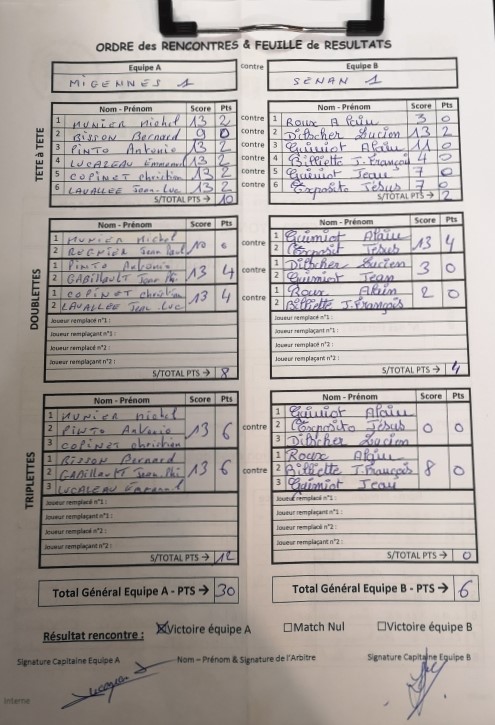 ORDRE des RENCONTRES & FEUILLE de RESULTATS
Equipe A contre Equipe B
MIGENNES 1 SENAN 1
TETE à TETE
Nom - Prénom Score Pts Nom - Prénom Score Pts
1 MUNIER Michel 13 2 contre 1 Roux Alain 3 0
2 BISSON Bernard 9 0 contre 2 Ditscher Lucien 13 2
3 PINTO Antonio 13 2 contre 3 Guimiot Alain 11 0
4 LUCAZEAU Emmanuel 13 2 contre 4 Billiette J. François 4 0
5 COPINET Christian 13 2 contre 5 Guimiot Jean 7 0
6 LAVALLEE Jean-Luc 13 2 contre 6 Exposito Jésus 7 0
S/TOTAL PTS → 10 S/TOTAL PTS → 2
DOUBLETTES
Nom - Prénom Score Pts Nom - Prénom Score Pts
1 MUNIER Michel 10 0 contre 1 Guimiot Alain 13 4
2 REGNIER Jean Paul 2 Exposit Jésus
1 PINTO Antonio 13 4 contre 1 Ditscher Lucien 3 0
2 GABILLAULT Jean Phi 2 Guimiot Jean
1 COPINET Christian 13 4 contre 1 Roux Alain 2 0
2 LAVALLEE Jean Luc 2 Billiette J. François
Joueur remplacé n°1 : Joueur remplacé n°1 :
Joueur remplaçant n°1 : Joueur remplaçant n°1 :
Joueur remplacé n°2 : Joueur remplacé n°2 :
Joueur remplaçant n°2 : Joueur remplaçant n°2 :
S/TOTAL PTS → 8 S/TOTAL PTS → 4
TRIPLETTES
Nom - Prénom Score Pts Nom - Prénom Score Pts
1 MUNIER Michel 1 Guimiot Alain
2 PINTO Antonio 13 6 contre 2 Exposito Jésus 0 0
3 COPINET Christian 3 Ditscher Lucien
1 BISSON Bernard 1 Roux Alain
2 GABILLAULT Jean Phi 13 6 contre 2 Billiette J. François 8 0
3 LUCAZEAU Emmanuel 3 Guimiot Jean
Joueur remplacé n°1 : Joueur remplacé n°1 :
Joueur remplaçant n°1 : Joueur remplaçant n°1 :
Joueur remplacé n°2 : Joueur remplacé n°2 :
Joueur remplaçant n°2 : Joueur remplaçant n°2 :
S/TOTAL PTS → 12 S/TOTAL PTS → 0
Total Général Equipe A - PTS → 30 Total Général Equipe B - PTS → 6
Résultat rencontre : ☒Victoire équipe A ☐Match Nul ☐Victoire équipe B
Signature Capitaine Equipe A Nom – Prénom & Signature de l'Arbitre Signature Capitaine Equipe B
Interne